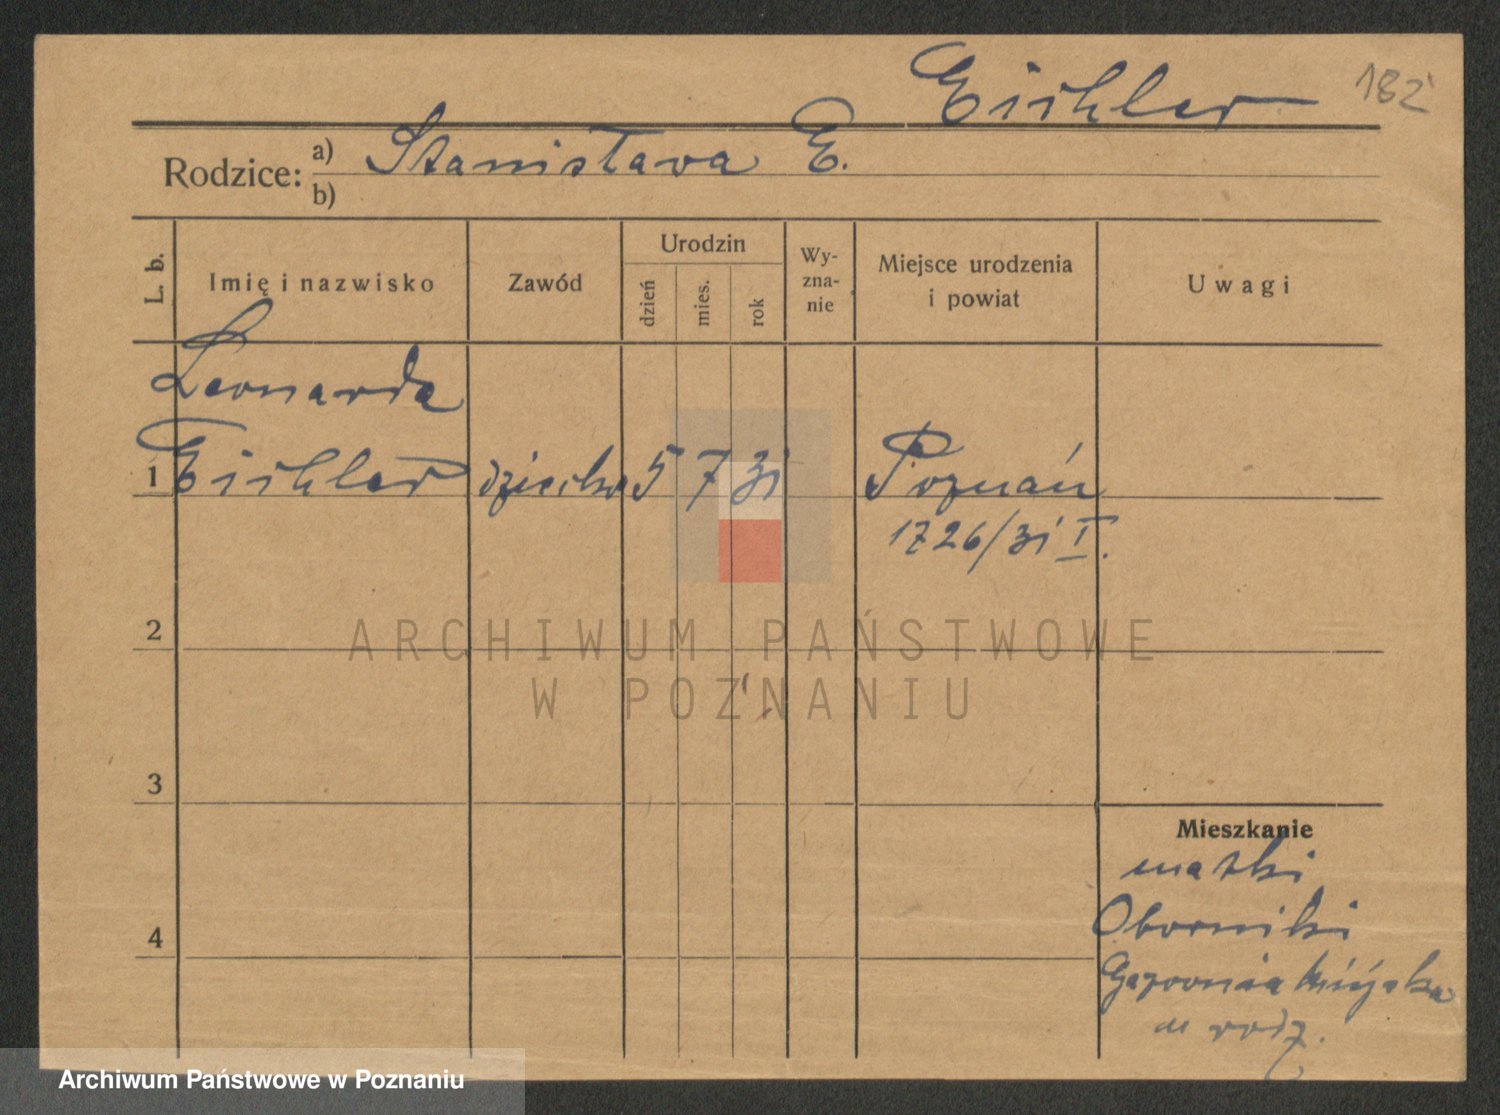 Eichler 182
Rodzice: a) Stanisława E.
b)
L. b. Imię i nazwisko Zawód Urodzin dzień mies. rok Wy-zna-nie Miejsce urodzenia i powiat Uwagi
Leonarda
1 Eichler dziecko 5 7 31 Poznań
1726/31 I.
2
ARCHIWUM PAŃSTWOWE
W POZNANIU
3
Mieszkanie
matki
Oborniki
4
Gazownia Miejska
u rodz.
Archiwum Państwowe w Poznaniu